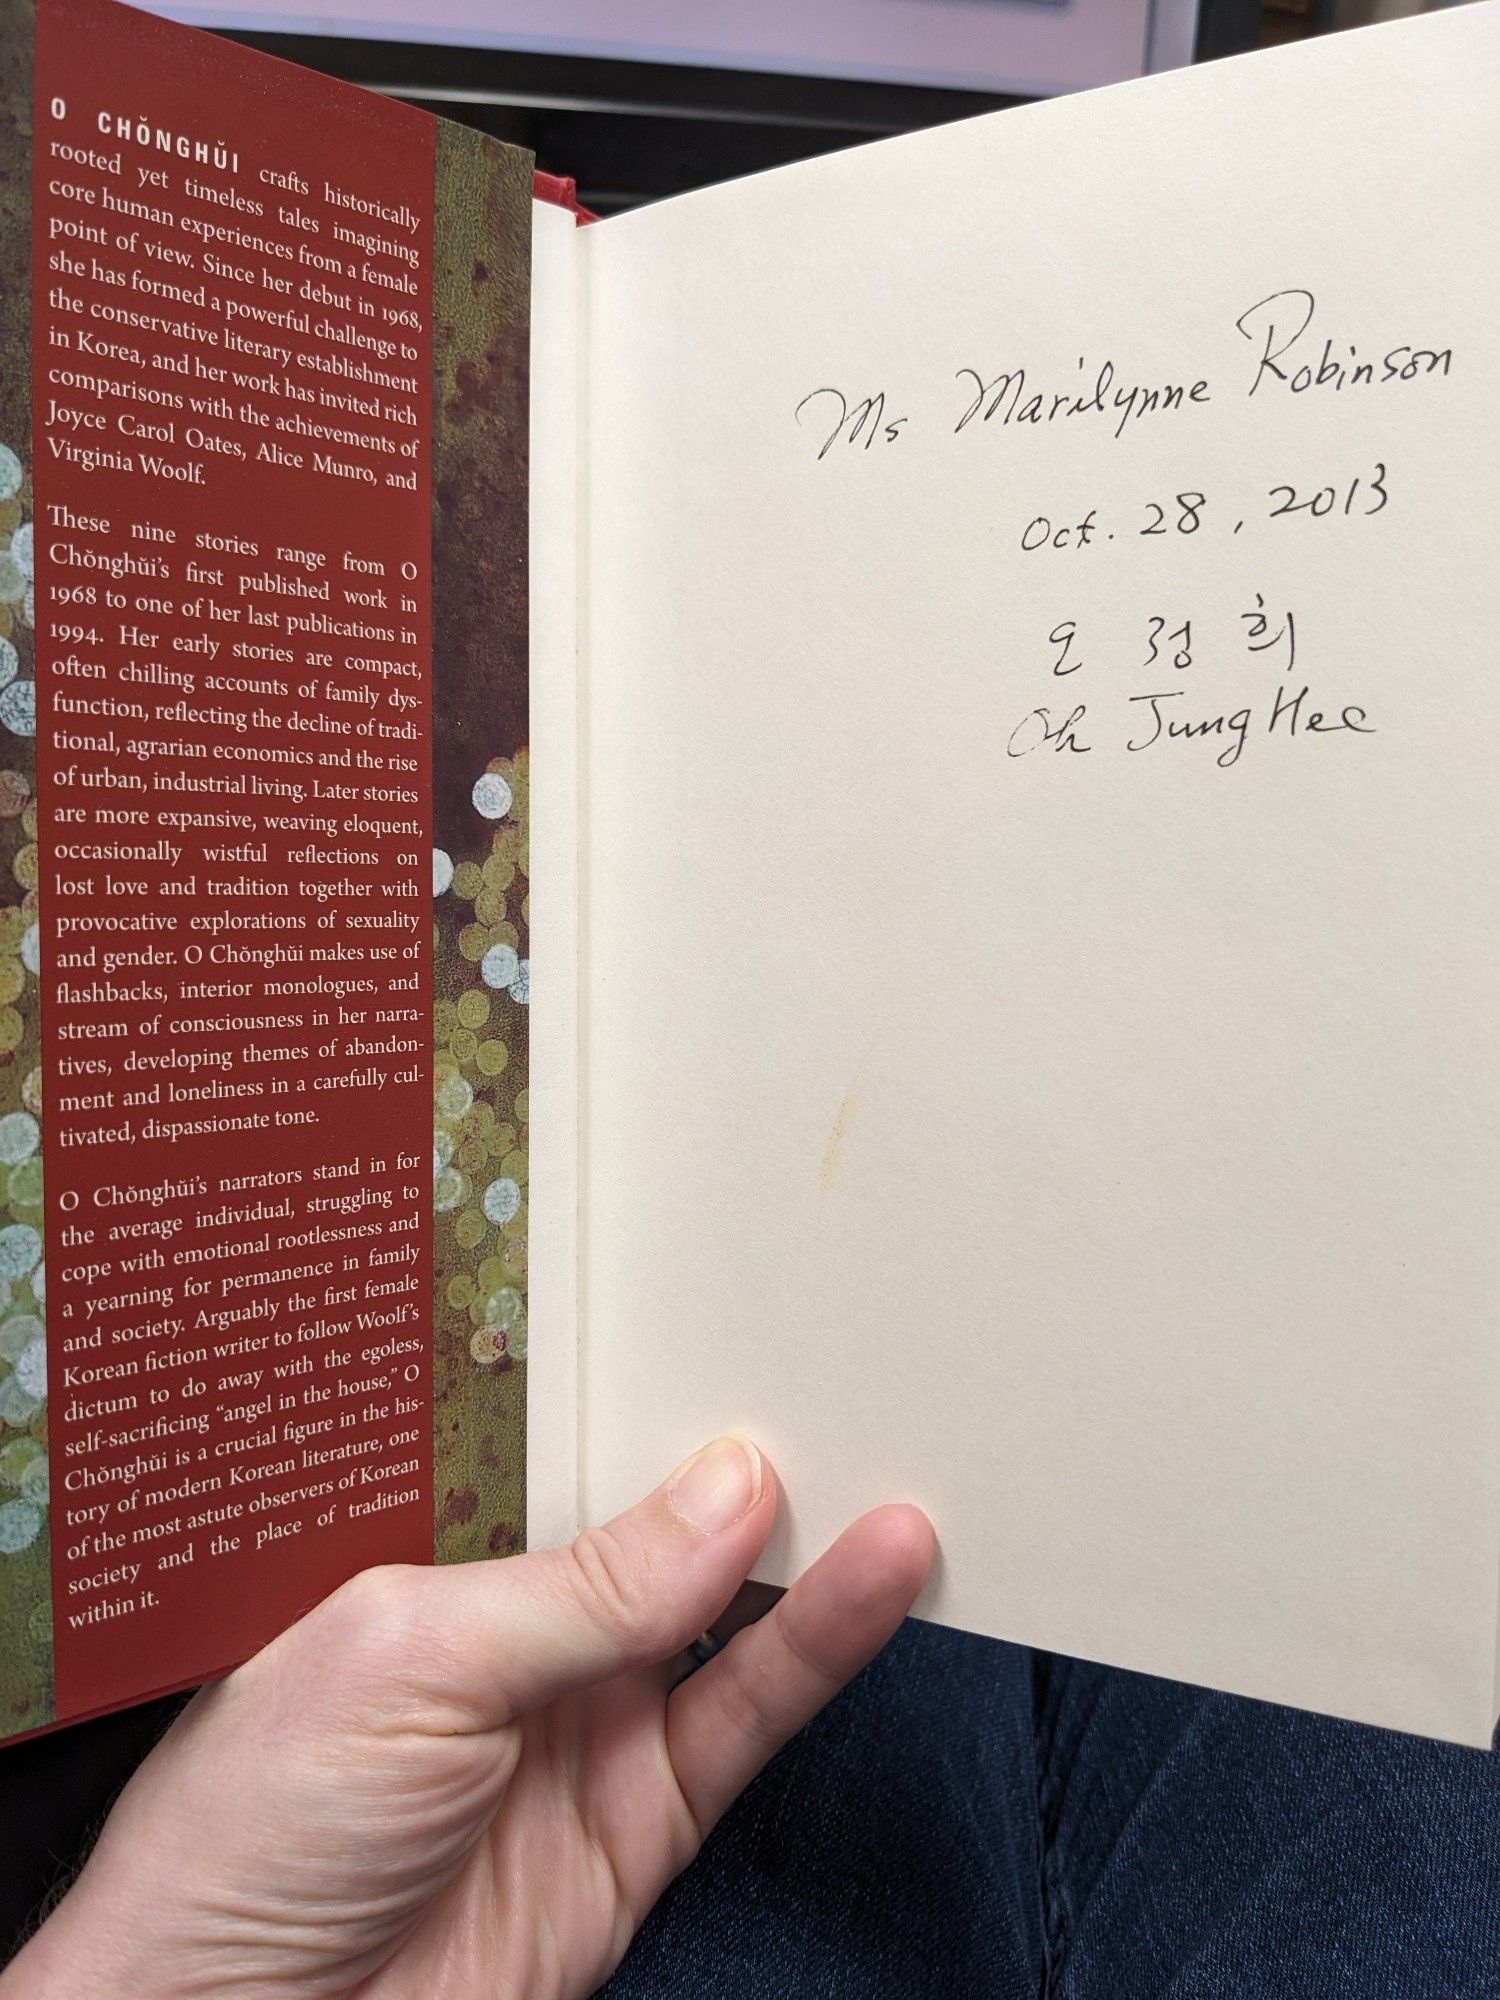 O CHŎNGHŬI crafts historically
rooted yet timeless tales imagining
core human experiences from a female
point of view. Since her debut in 1968,
she has formed a powerful challenge to
the conservative literary establishment
in Korea, and her work has invited rich
comparisons with the achievements of
Joyce Carol Oates, Alice Munro, and
Virginia Woolf.
These nine stories range from O
Chŏnghŭi's first published work in
1968 to one of her last publications in
1994. Her early stories are compact,
often chilling accounts of family dys-
function, reflecting the decline of tradi-
tional, agrarian economics and the rise
of urban, industrial living. Later stories
are more expansive, weaving eloquent,
occasionally wistful reflections on
lost love and tradition together with
provocative explorations of sexuality
and gender. O Chŏnghŭi makes use of
flashbacks, interior monologues, and
stream of consciousness in her narra-
tives, developing themes of abandon-
ment and loneliness in a carefully cul-
tivated, dispassionate tone.
O Chŏnghŭi's narrators stand in for
the average individual, struggling to
cope with emotional rootlessness and
a yearning for permanence in family
and society. Arguably the first female
Korean fiction writer to follow Woolf's
dictum to do away with the egoless,
self-sacrificing “angel in the house,” O
Chŏnghŭi is a crucial figure in the his-
tory of modern Korean literature, one
of the most astute observers of Korean
society and the place of tradition
within it.
Ms Marilynne Robinson
Oct. 28, 2013
오 정 희
Oh Jung Hee